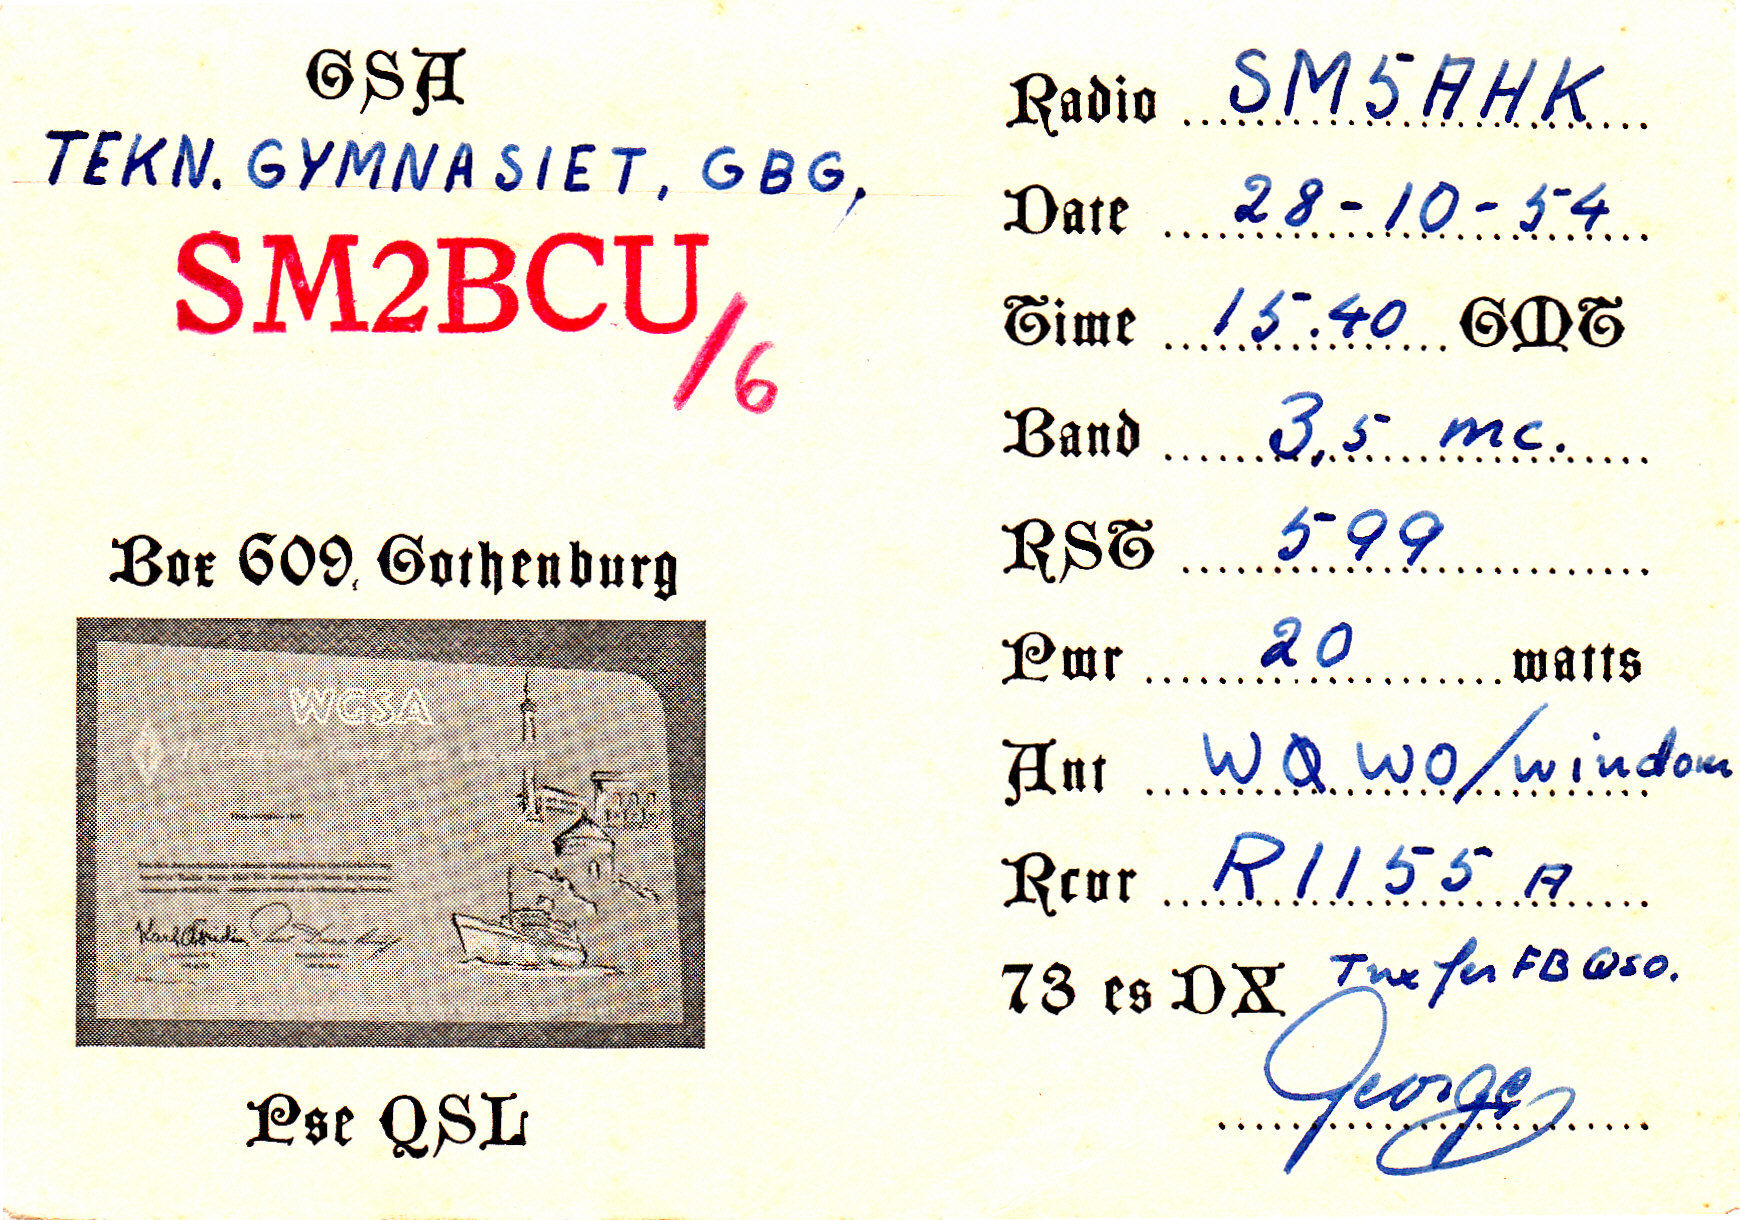 GSA
TEKN. GYMNASIET, GBG,
SM2BCU/6
Box 609, Gothenburg
WGSA
Pse QSL
Radio SM5AHK
Date 28-10-54
Time 15.40 GMT
Band 3,5 mc.
RST 599
Pwr 20 watts
Ant WØWO/windom
Rcvr R1155A
73 es DX Tnx fer FB QSO.
George